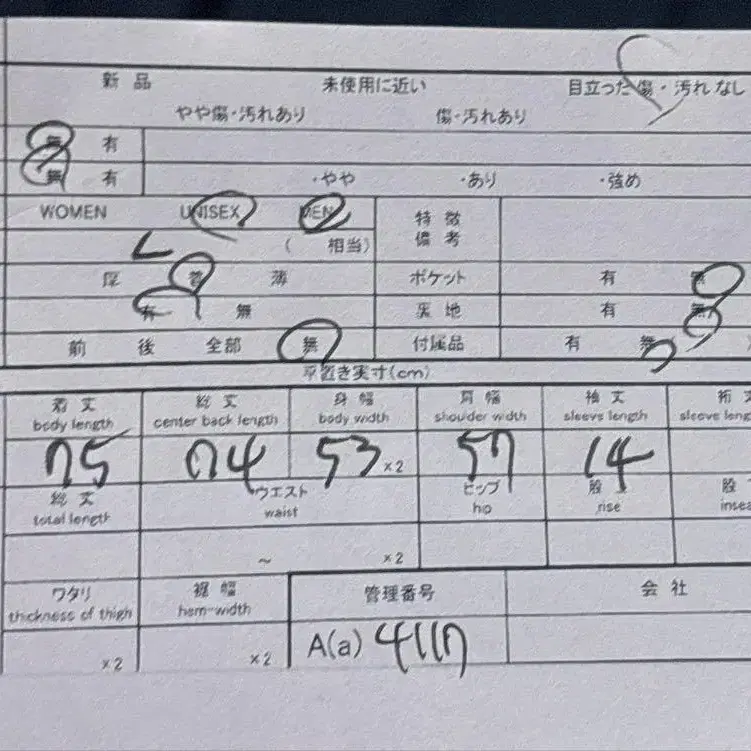 新品 未使用に近い 目立った傷・汚れなし
やや傷・汚れあり 傷・汚れあり
無 有
無 有 ・やや ・あり ・強め
WOMEN UNISEX MEN 特徴
備考
L ( 相当)
厚 普 薄 ポケット 有 無
有 無 裏地 有 無
前 後 全部 無 付属品 有 無
平置き実寸(cm)
着丈 総丈 身幅 肩幅 袖丈 裄丈
body length center back length body width shoulder width sleeve length sleeve
75 74 53 ×2 57 14
総丈 ウエスト ヒップ 股上 股
total length waist hip rise
~ ×2
ワタリ 裾幅 管理番号 会社
thickness of thigh hem-width
×2 ×2 A(a) 4117